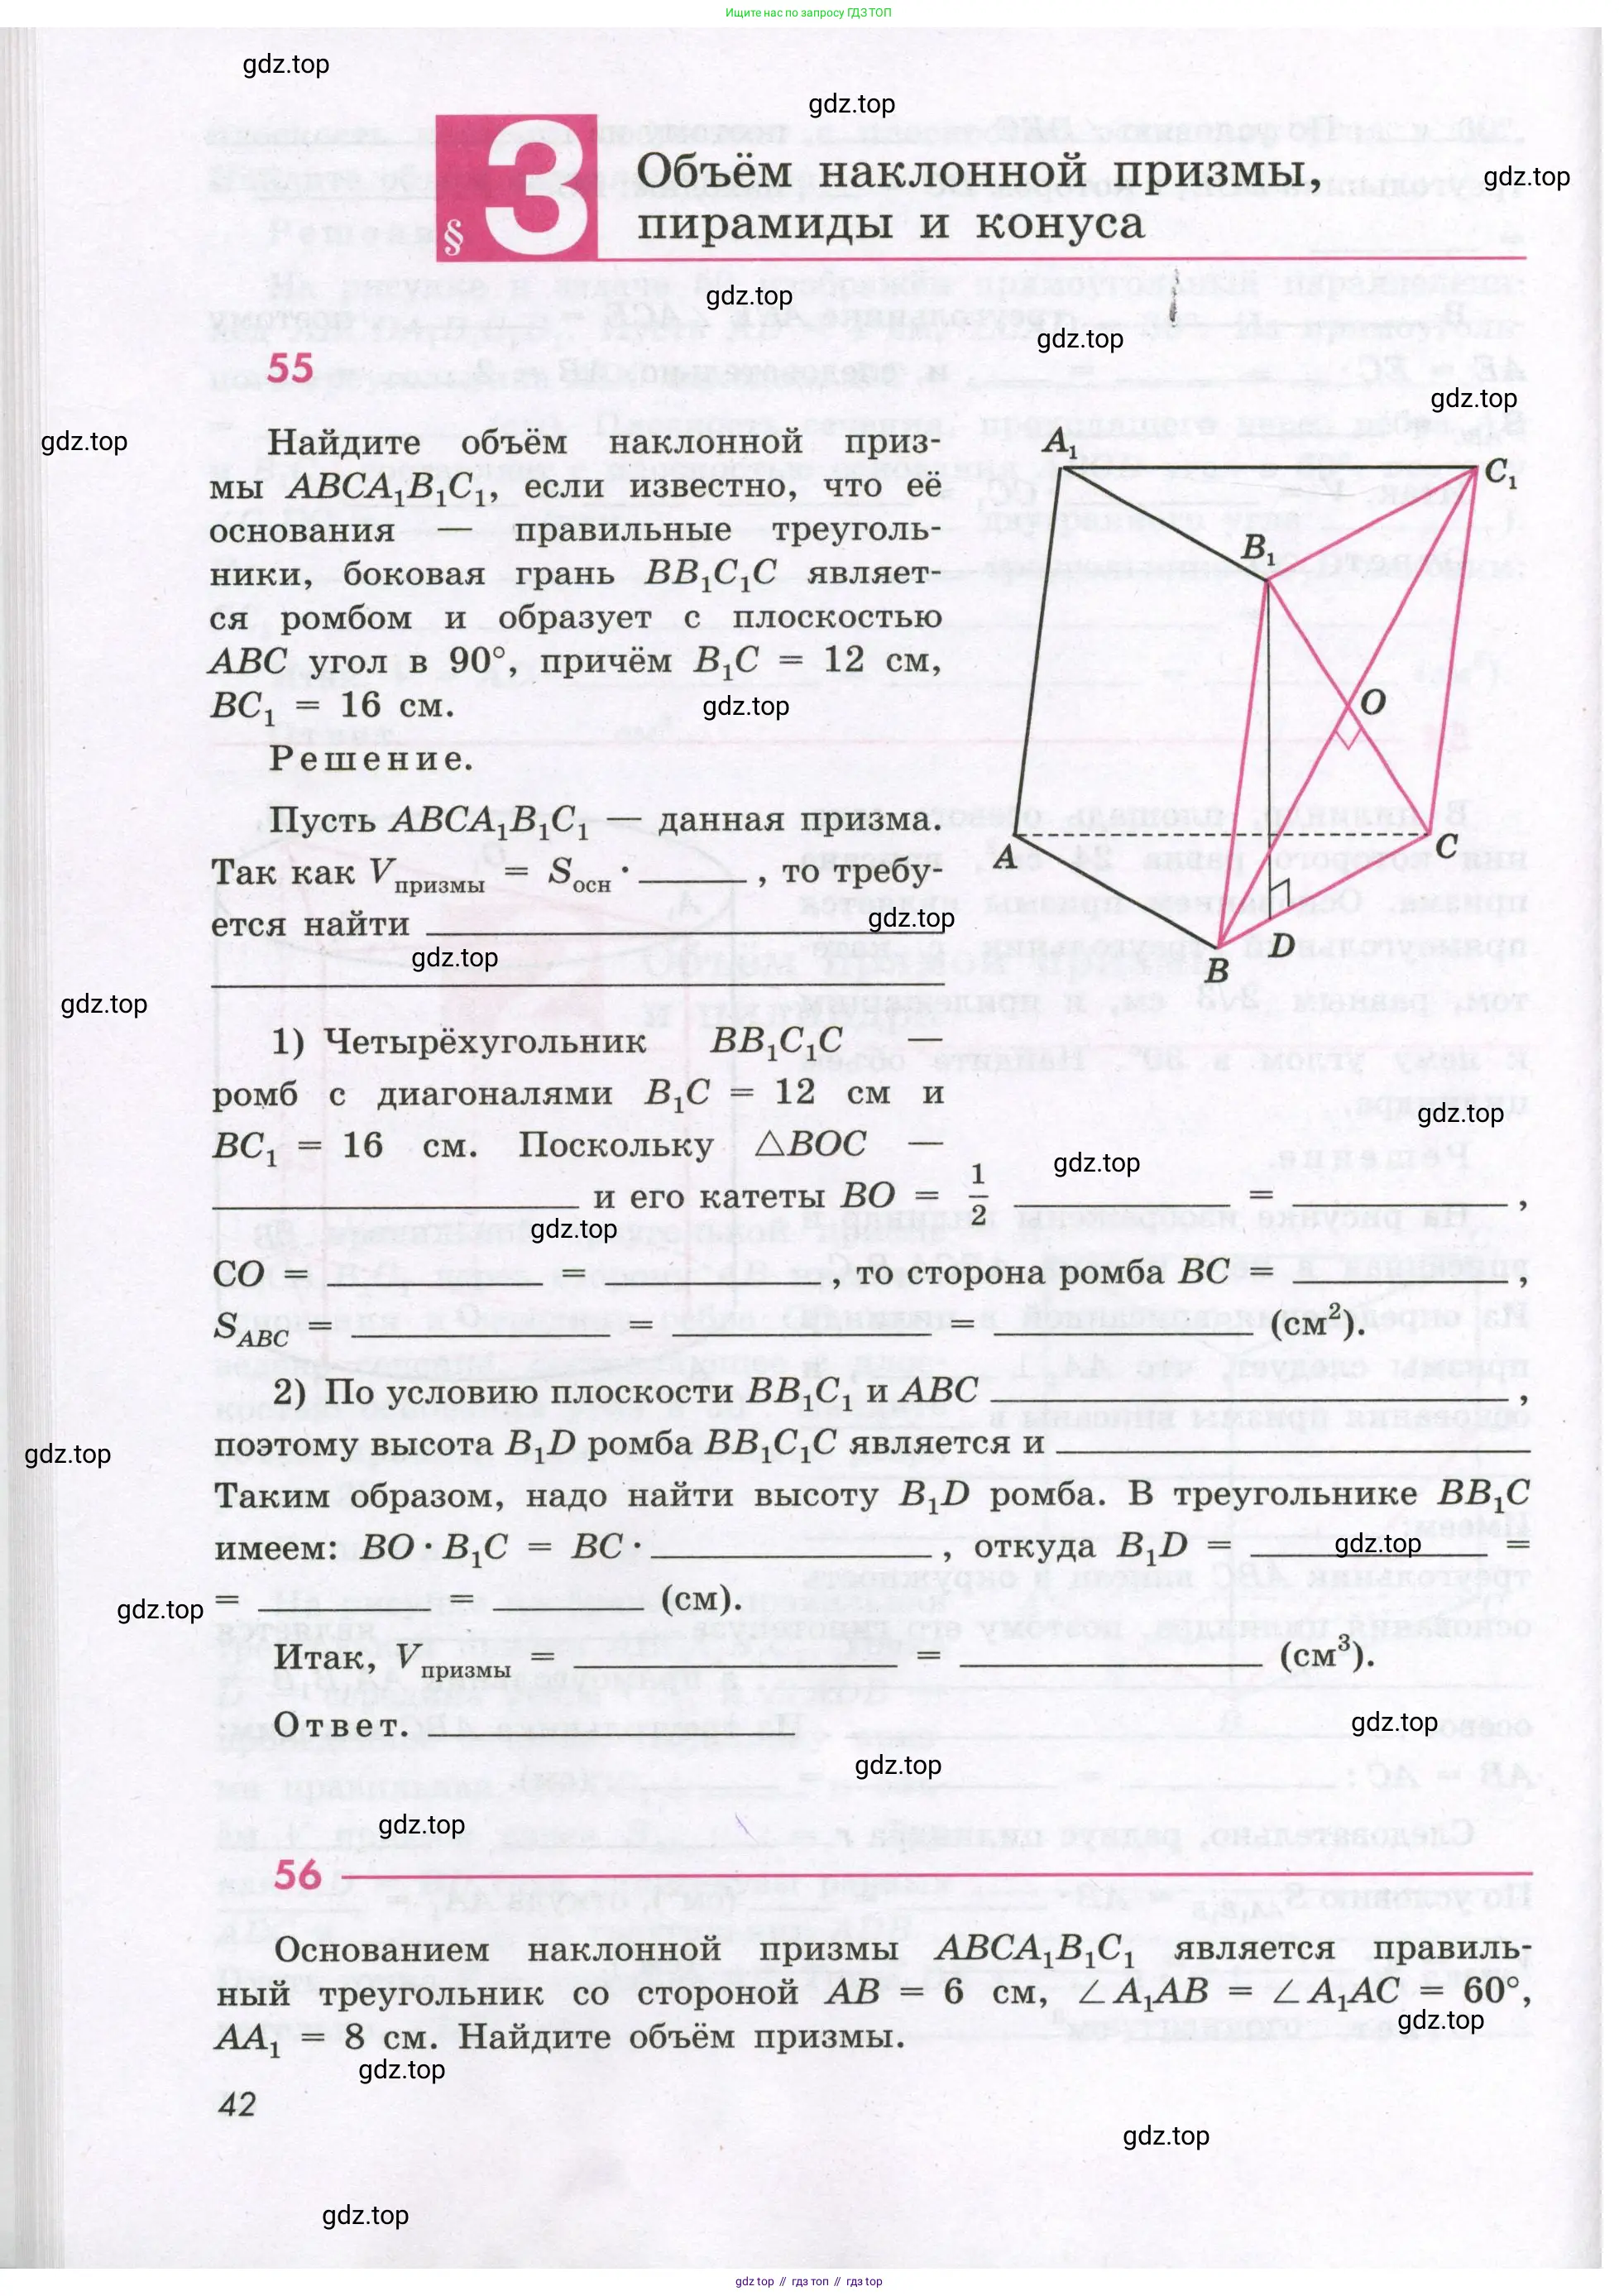 Ищите нас по запросу ГДЗ ТОП
gdz.top
gdz.top
§ 3 Объём наклонной призмы,
пирамиды и конуса
gdz.top
gdz.top
gdz.top
55
gdz.top
gdz.top
Найдите объём наклонной приз-
мы ABCA₁B₁C₁, если известно, что её
основания — правильные треуголь-
ники, боковая грань BB₁C₁C являет-
ся ромбом и образует с плоскостью
ABC угол в 90°, причём B₁C = 12 см,
BC₁ = 16 см.
gdz.top
A₁
C₁
B₁
O
A
C
D
B
Решение.
Пусть ABCA₁B₁C₁ — данная призма.
Так как Vпризмы = Sосн · ______ , то требу-
ется найти ______
gdz.top
gdz.top
gdz.top
1) Четырёхугольник BB₁C₁C —
ромб с диагоналями B₁C = 12 см и
gdz.top
BC₁ = 16 см. Поскольку △BOC —
gdz.top
______ и его катеты BO = 1/2 ______ = ______ ,
gdz.top
CO = ______ = ______ , то сторона ромба BC = ______ ,
S_ABC = ______ = ______ = ______ (см²).
2) По условию плоскости BB₁C₁ и ABC ______ ,
поэтому высота B₁D ромба BB₁C₁C является и ______
gdz.top
Таким образом, надо найти высоту B₁D ромба. В треугольнике BB₁C
имеем: BO · B₁C = BC · ______ , откуда B₁D = ______ =
gdz.top
= ______ = ______ (см).
gdz.top
Итак, Vпризмы = ______ = ______ (см³).
Ответ. ______
gdz.top
gdz.top
gdz.top
56
Основанием наклонной призмы ABCA₁B₁C₁ является правиль-
ный треугольник со стороной AB = 6 см, ∠A₁AB = ∠A₁AC = 60°,
AA₁ = 8 см. Найдите объём призмы.
gdz.top
gdz.top
42
gdz.top
gdz.top
gdz top // гдз топ // гдз top